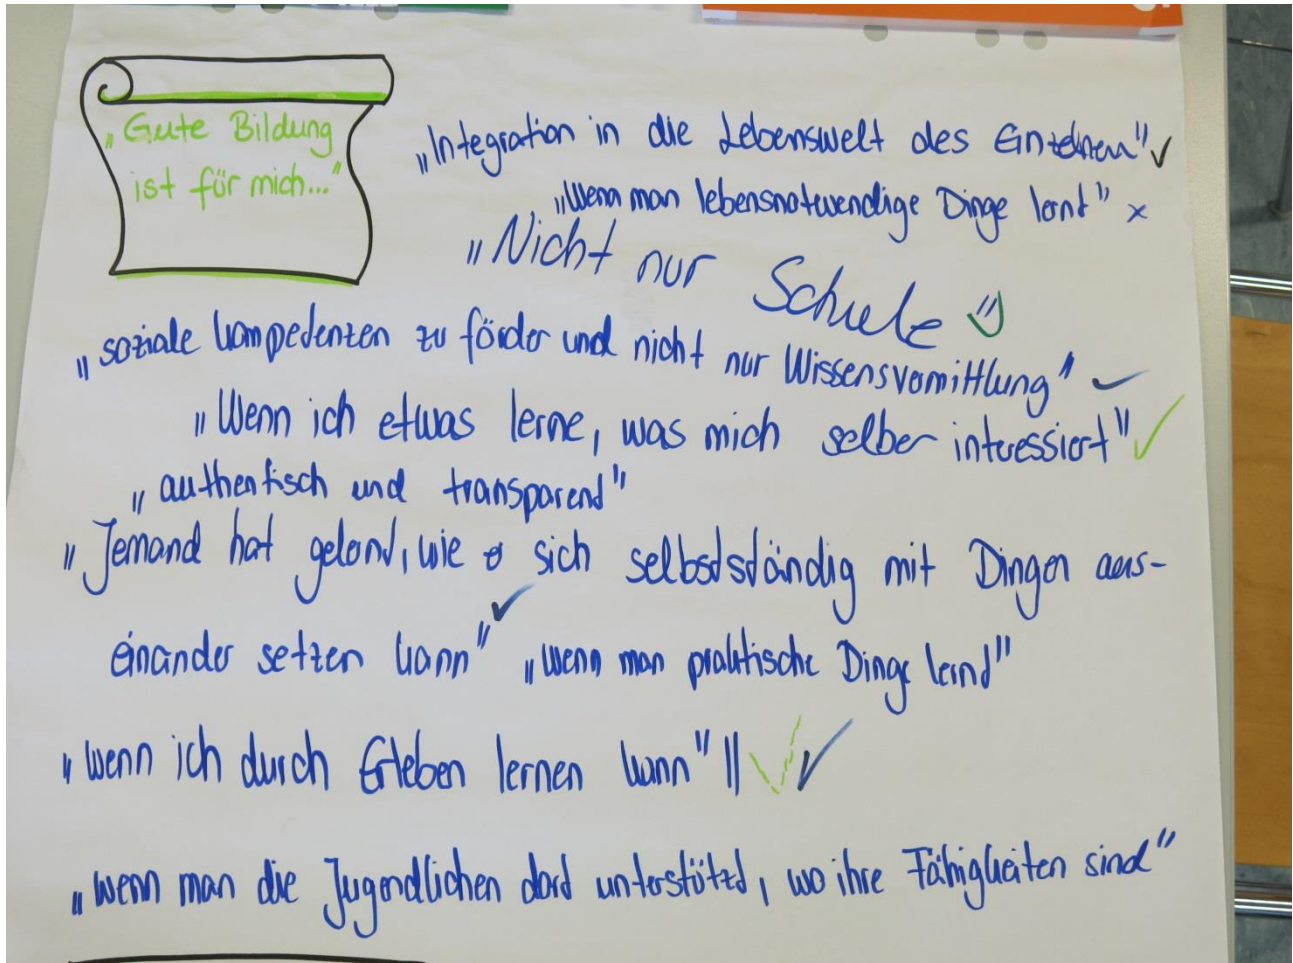 „Gute Bildung
ist für mich..."
„Integration in die Lebenswelt des Einzelnen" ✓
„Wenn man lebensnotwendige Dinge lernt" x
„Nicht nur Schule"
„soziale Kompedenzen zu förder und nicht nur Wissensvermittlung" ✓
„Wenn ich etwas lerne, was mich selber interessiert" ✓
„authentisch und transparend"
„Jemand hat gelernd, wie er sich selbsdsdändig mit Dingen aus-
einander setzen kann" ✓ „wenn man praktische Dinge lernd"
„wenn ich durch Erleben lernen kann" || ✓ ✓
„wenn man die Jugendlichen dord unterstützd, wo ihre Fähigkeiten sind"